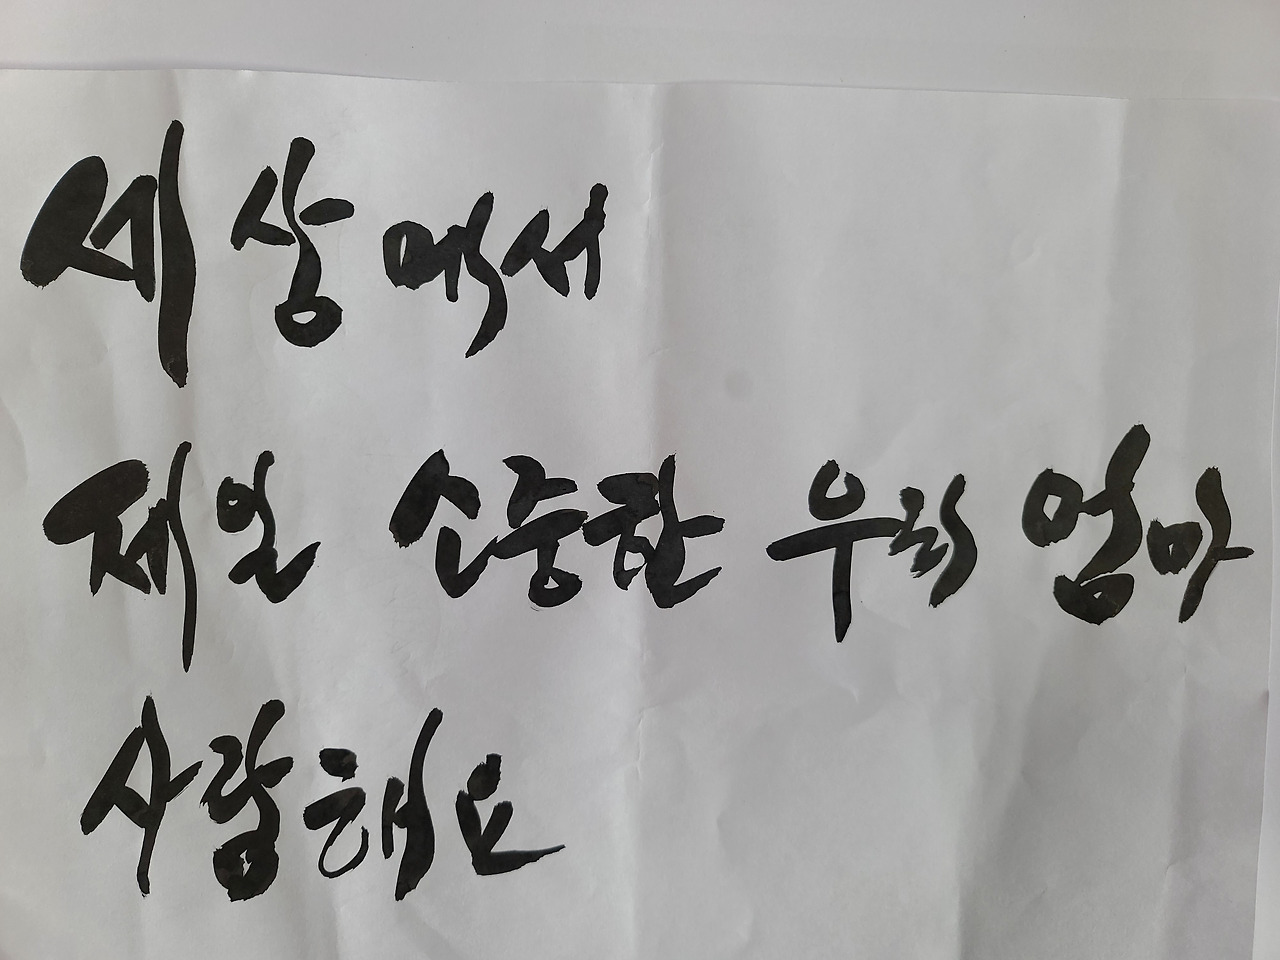 세상에서
제일 소중한 우리 엄마
사랑해요